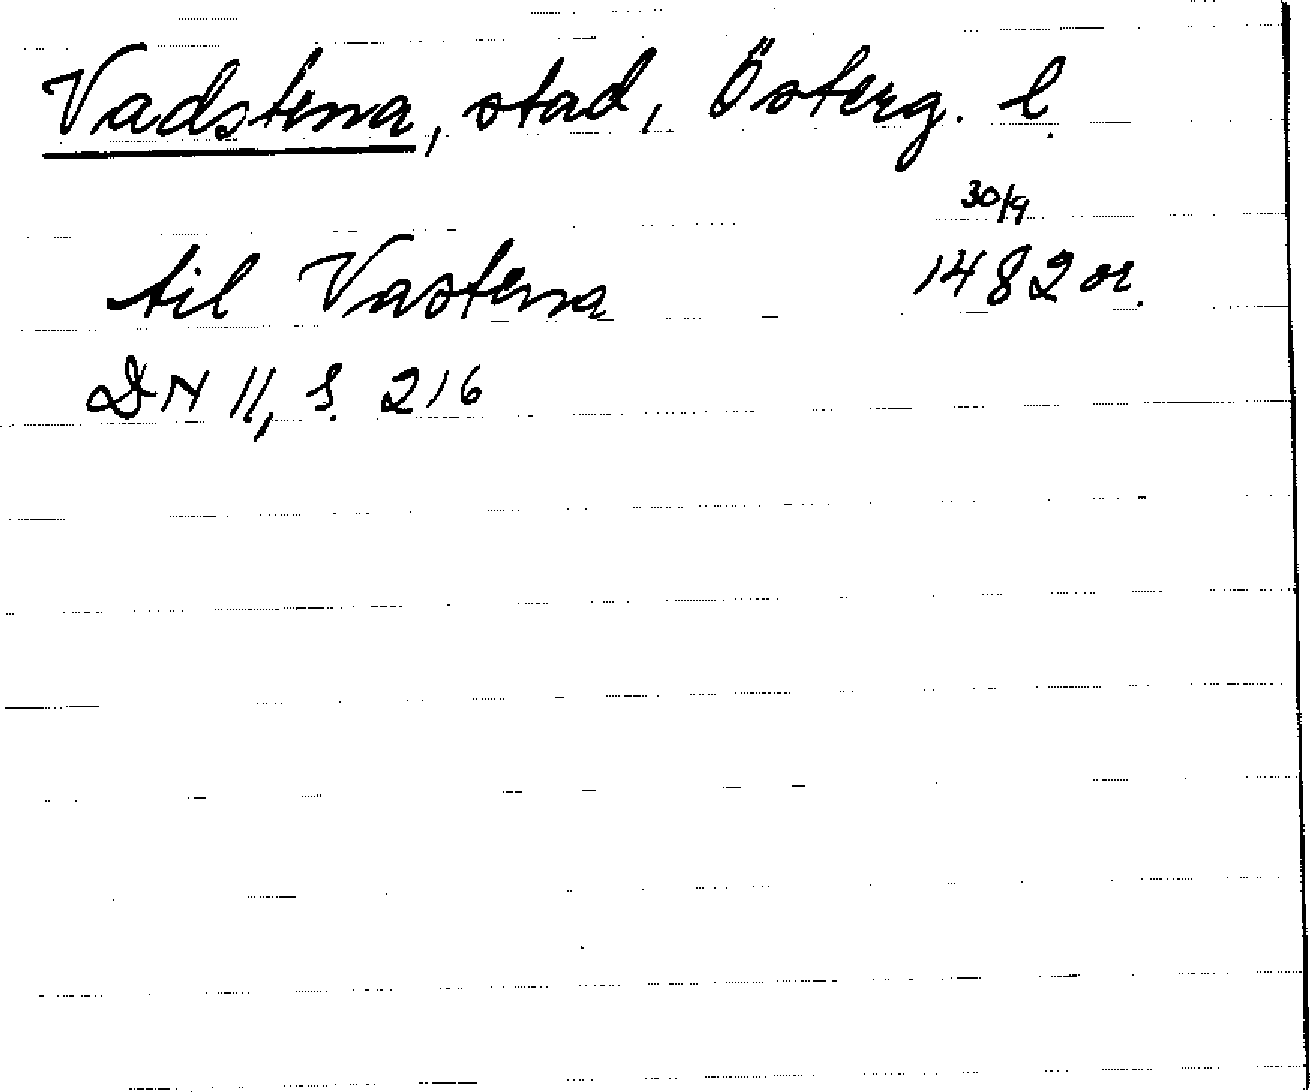 Vadstena, stad, Österg. l.
30/9
til Vastena 1482 or.
DN II, s. 216